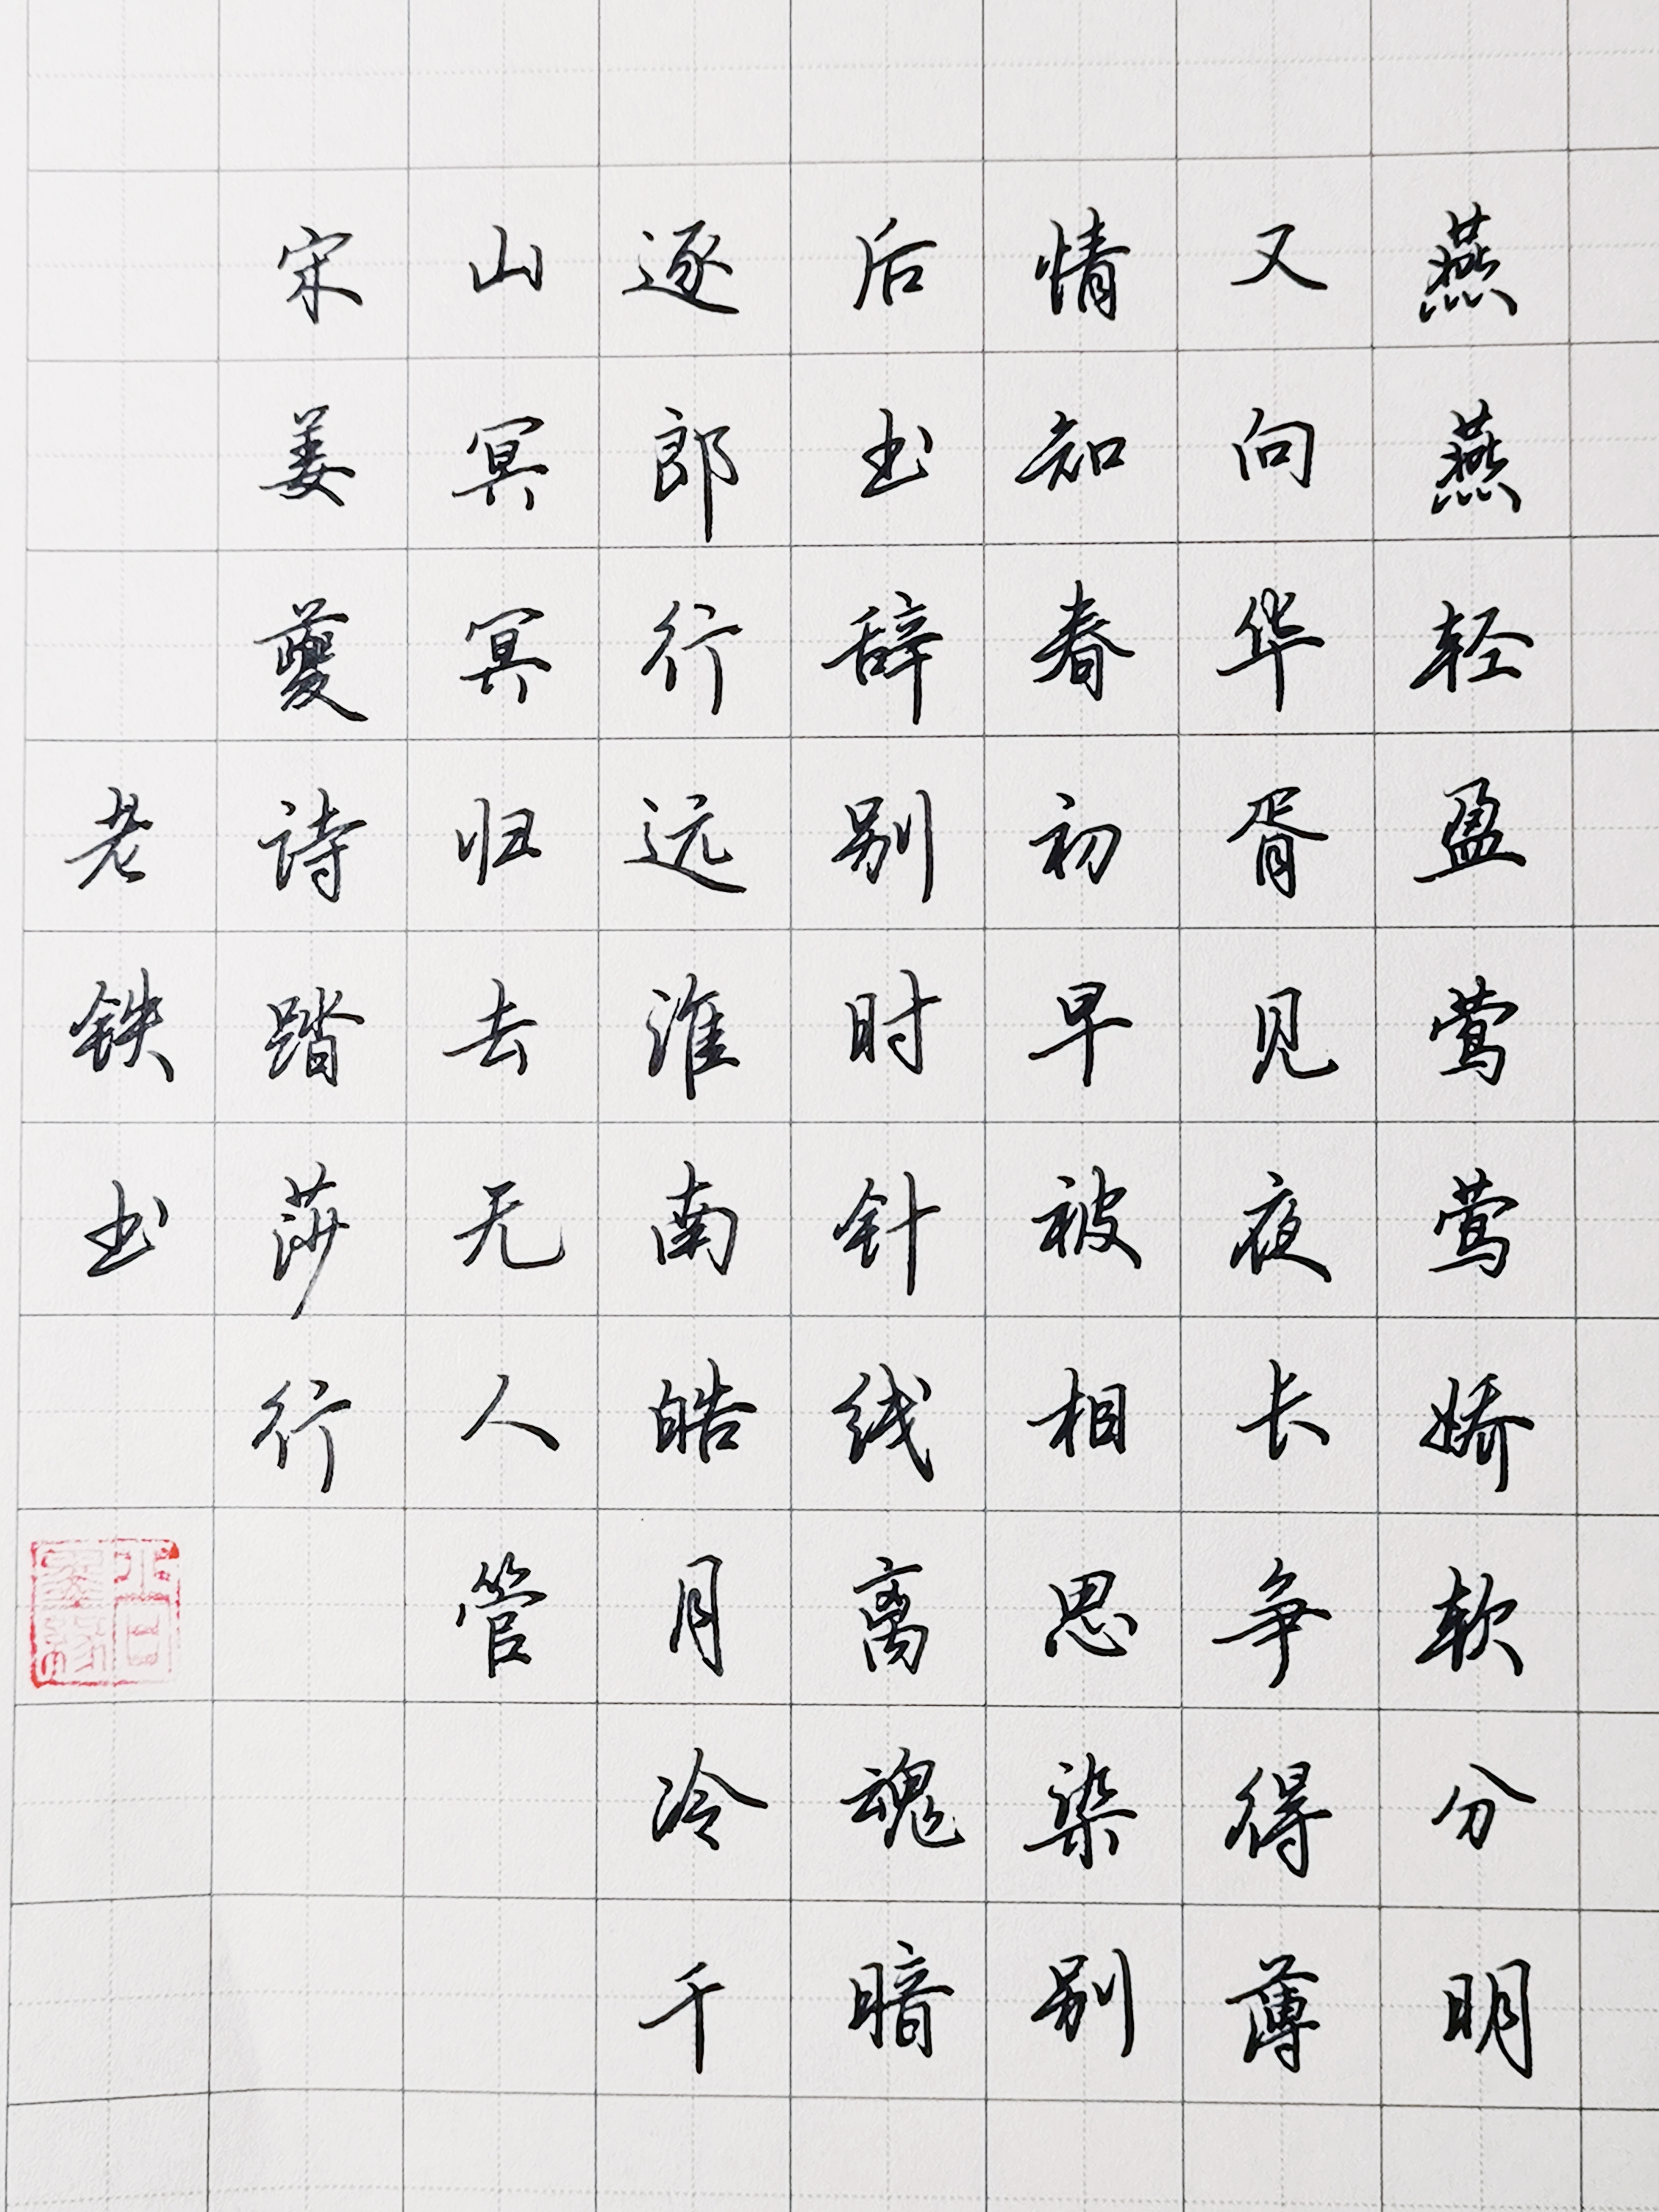 燕燕轻盈莺莺娇软分明
又向华胥见夜长争得薄
情知春初早被相思染别
后书辞别时针线离魂暗
逐郎行远淮南皓月冷千
山冥冥归去无人管
宋姜夔诗踏莎行
老铁书